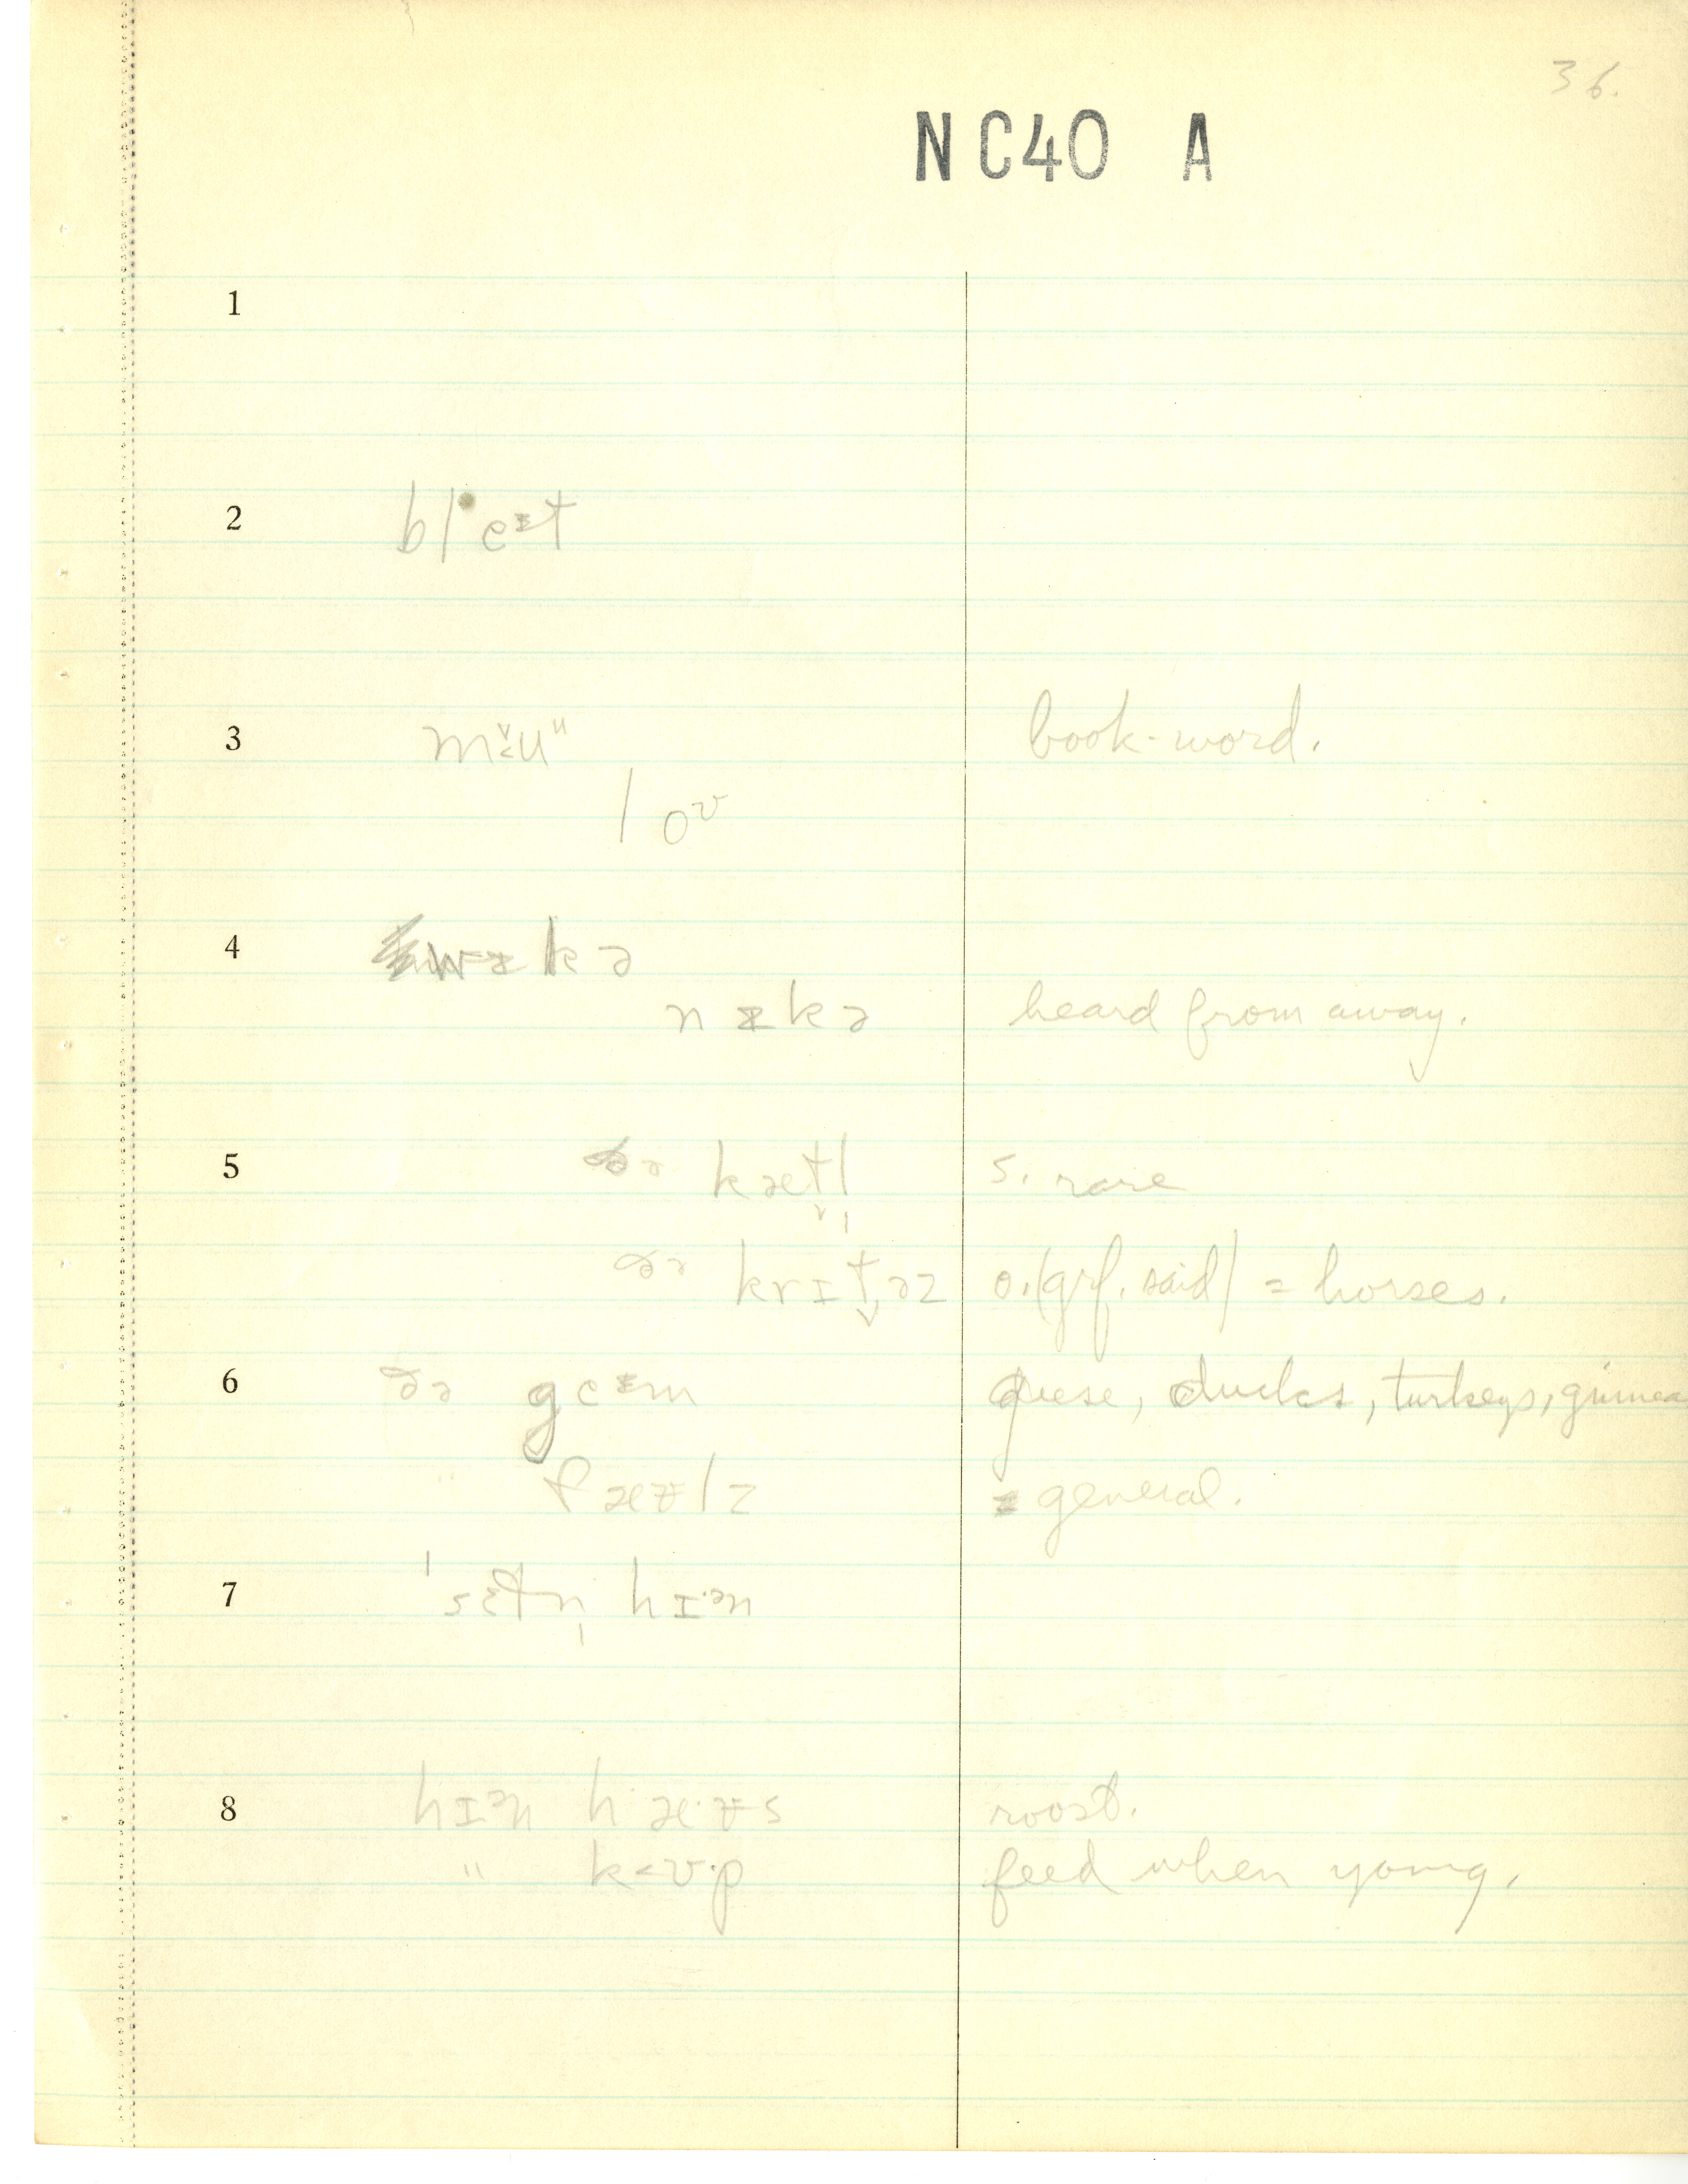 36.
NC40 A
1
2 bl eᵻt
3 mu̬ᵘ book-word.
l oᶷ
4 wᵻkə
nᵻkə heard from away.
5 ðə kætl̩ s. rare
ðə krɪt̬əz o. (grf. said) = horses.
6 ðə geᵻm geese, ducks, turkeys, guinea
" fæᵿlz = general.
7 ˈsɛtn̩ hɪ·ən
8 hɪən hæ·ᵿs roost.
" k<ʊ·p feed when young.